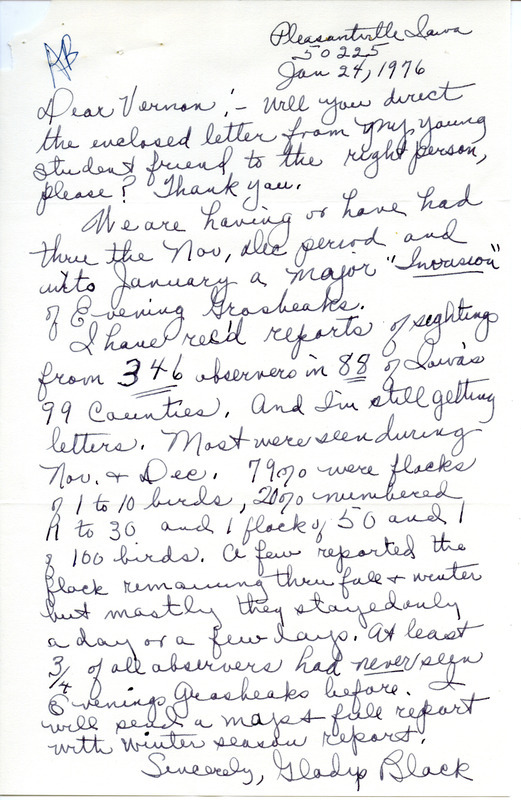 Pleasantville Iowa
50225
Jan 24, 1976
Dear Vernon:- Will you direct
the enclosed letter from my young
student friend to the right person,
please? Thank you.
We are having or have had
thru the Nov, Dec period and
into January a major "Invasion"
of Evening Grosbeaks.
I have rec'd reports of sightings
from 346 observers in 88 of Iowa's
99 Counties. And I'm still getting
letters. Most were seen during
Nov. & Dec. 79% were flocks
of 1 to 10 birds, 20% numbered
11 to 30 and 1 flock of 50 and 1
of 100 birds. A few reported the
flock remaining thru fall & winter
but mostly they stayed only
a day or a few days. At least
3/4 of all observers had never seen
Evening Grosbeaks before. I
will send a map & full report
with winter season report.
Sincerely, Gladys Black